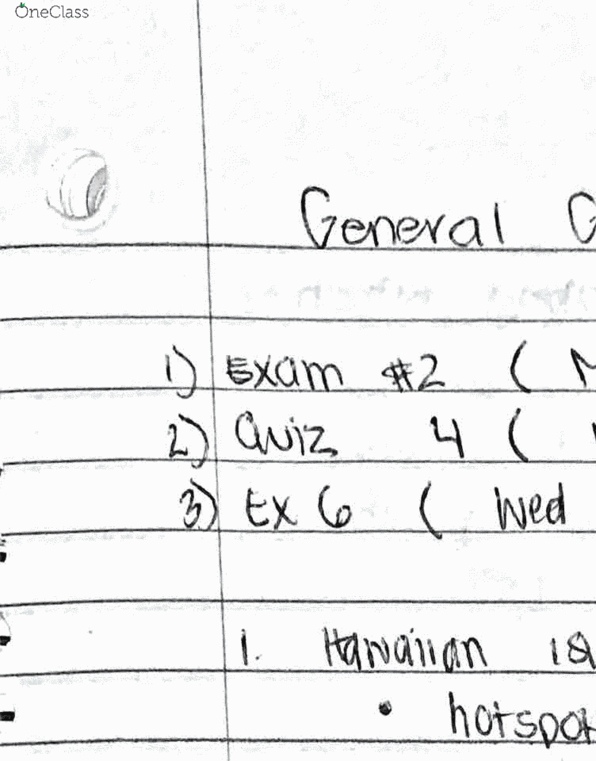 OneClass
General G
1) Exam #2 (
2) Quiz 4 (
3) Ex 6 ( Wed
1. Hawaiian is
• hotspot